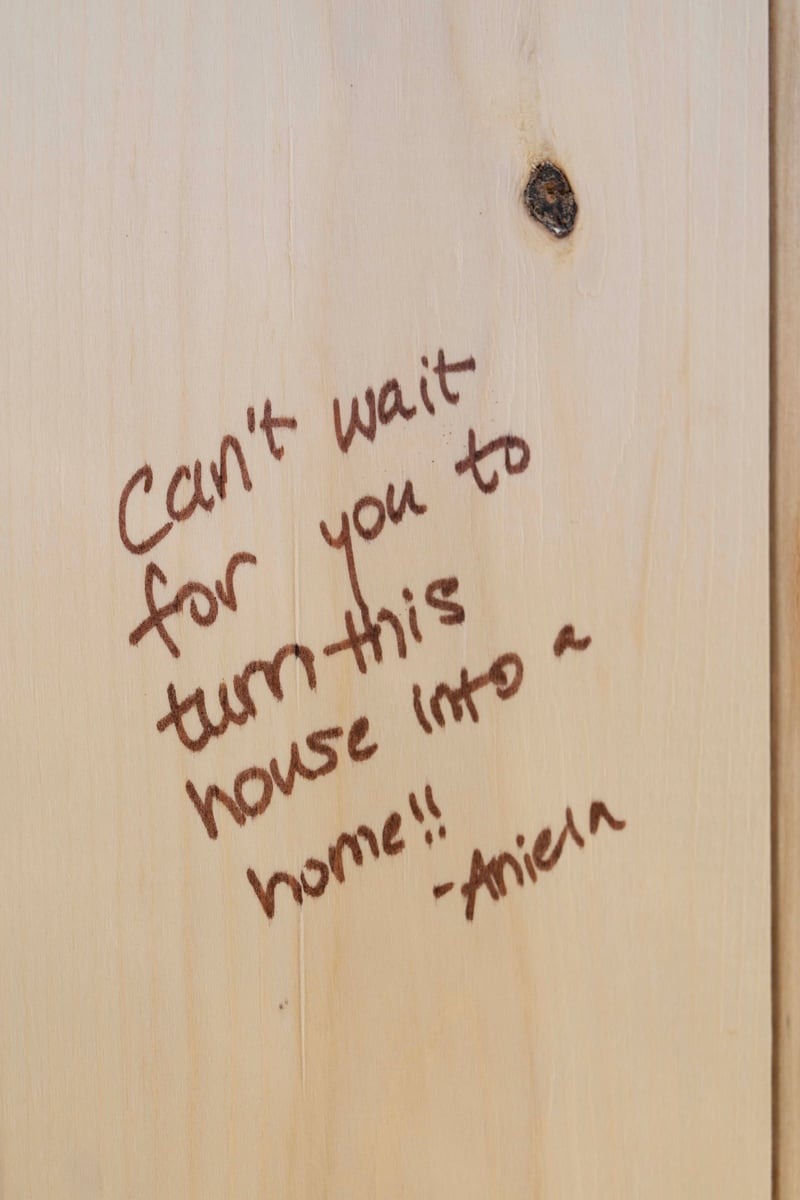 Can't wait
for you to
turn this
house into a
home!!
-Aniela